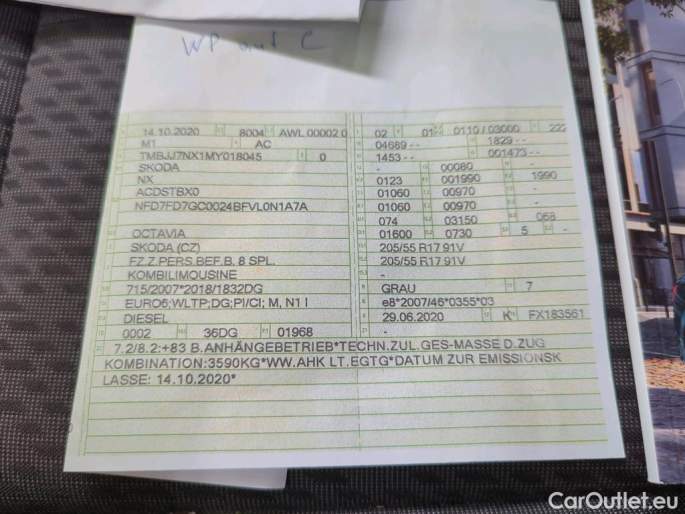 WP auf C
14.10.2020 8004 AWL 00002 0
M1 AC
TMBJJ7NX1MY018045 0
SKODA
NX
ACDSTBX0
NFD7FD7GC0024BFVL0N1A7A
OCTAVIA
SKODA (CZ)
FZ.Z.PERS.BEF.B. 8 SPL.
KOMBILIMOUSINE
715/2007*2018/1832DG
EURO6;WLTP;DG;PI/CI; M, N1 I
DIESEL
0002 36DG 01968
02 01 0110 / 03000 222
04689 -- 1829 --
1453 -- 001473 --
- 00080 -
0123 001990 1990
01060 00970 -
01060 00970 -
074 03150 068
01600 0730 5 -
205/55 R17 91V
205/55 R17 91V
-
GRAU 7
e8*2007/46*0355*03
29.06.2020 K FX183561
-
7.2/8.2:+83 B.ANHÄNGEBETRIEB*TECHN.ZUL.GES-MASSE D.ZUG
KOMBINATION:3590KG*WW.AHK LT.EGTG*DATUM ZUR EMISSIONSK
LASSE: 14.10.2020*
CarOutlet.eu